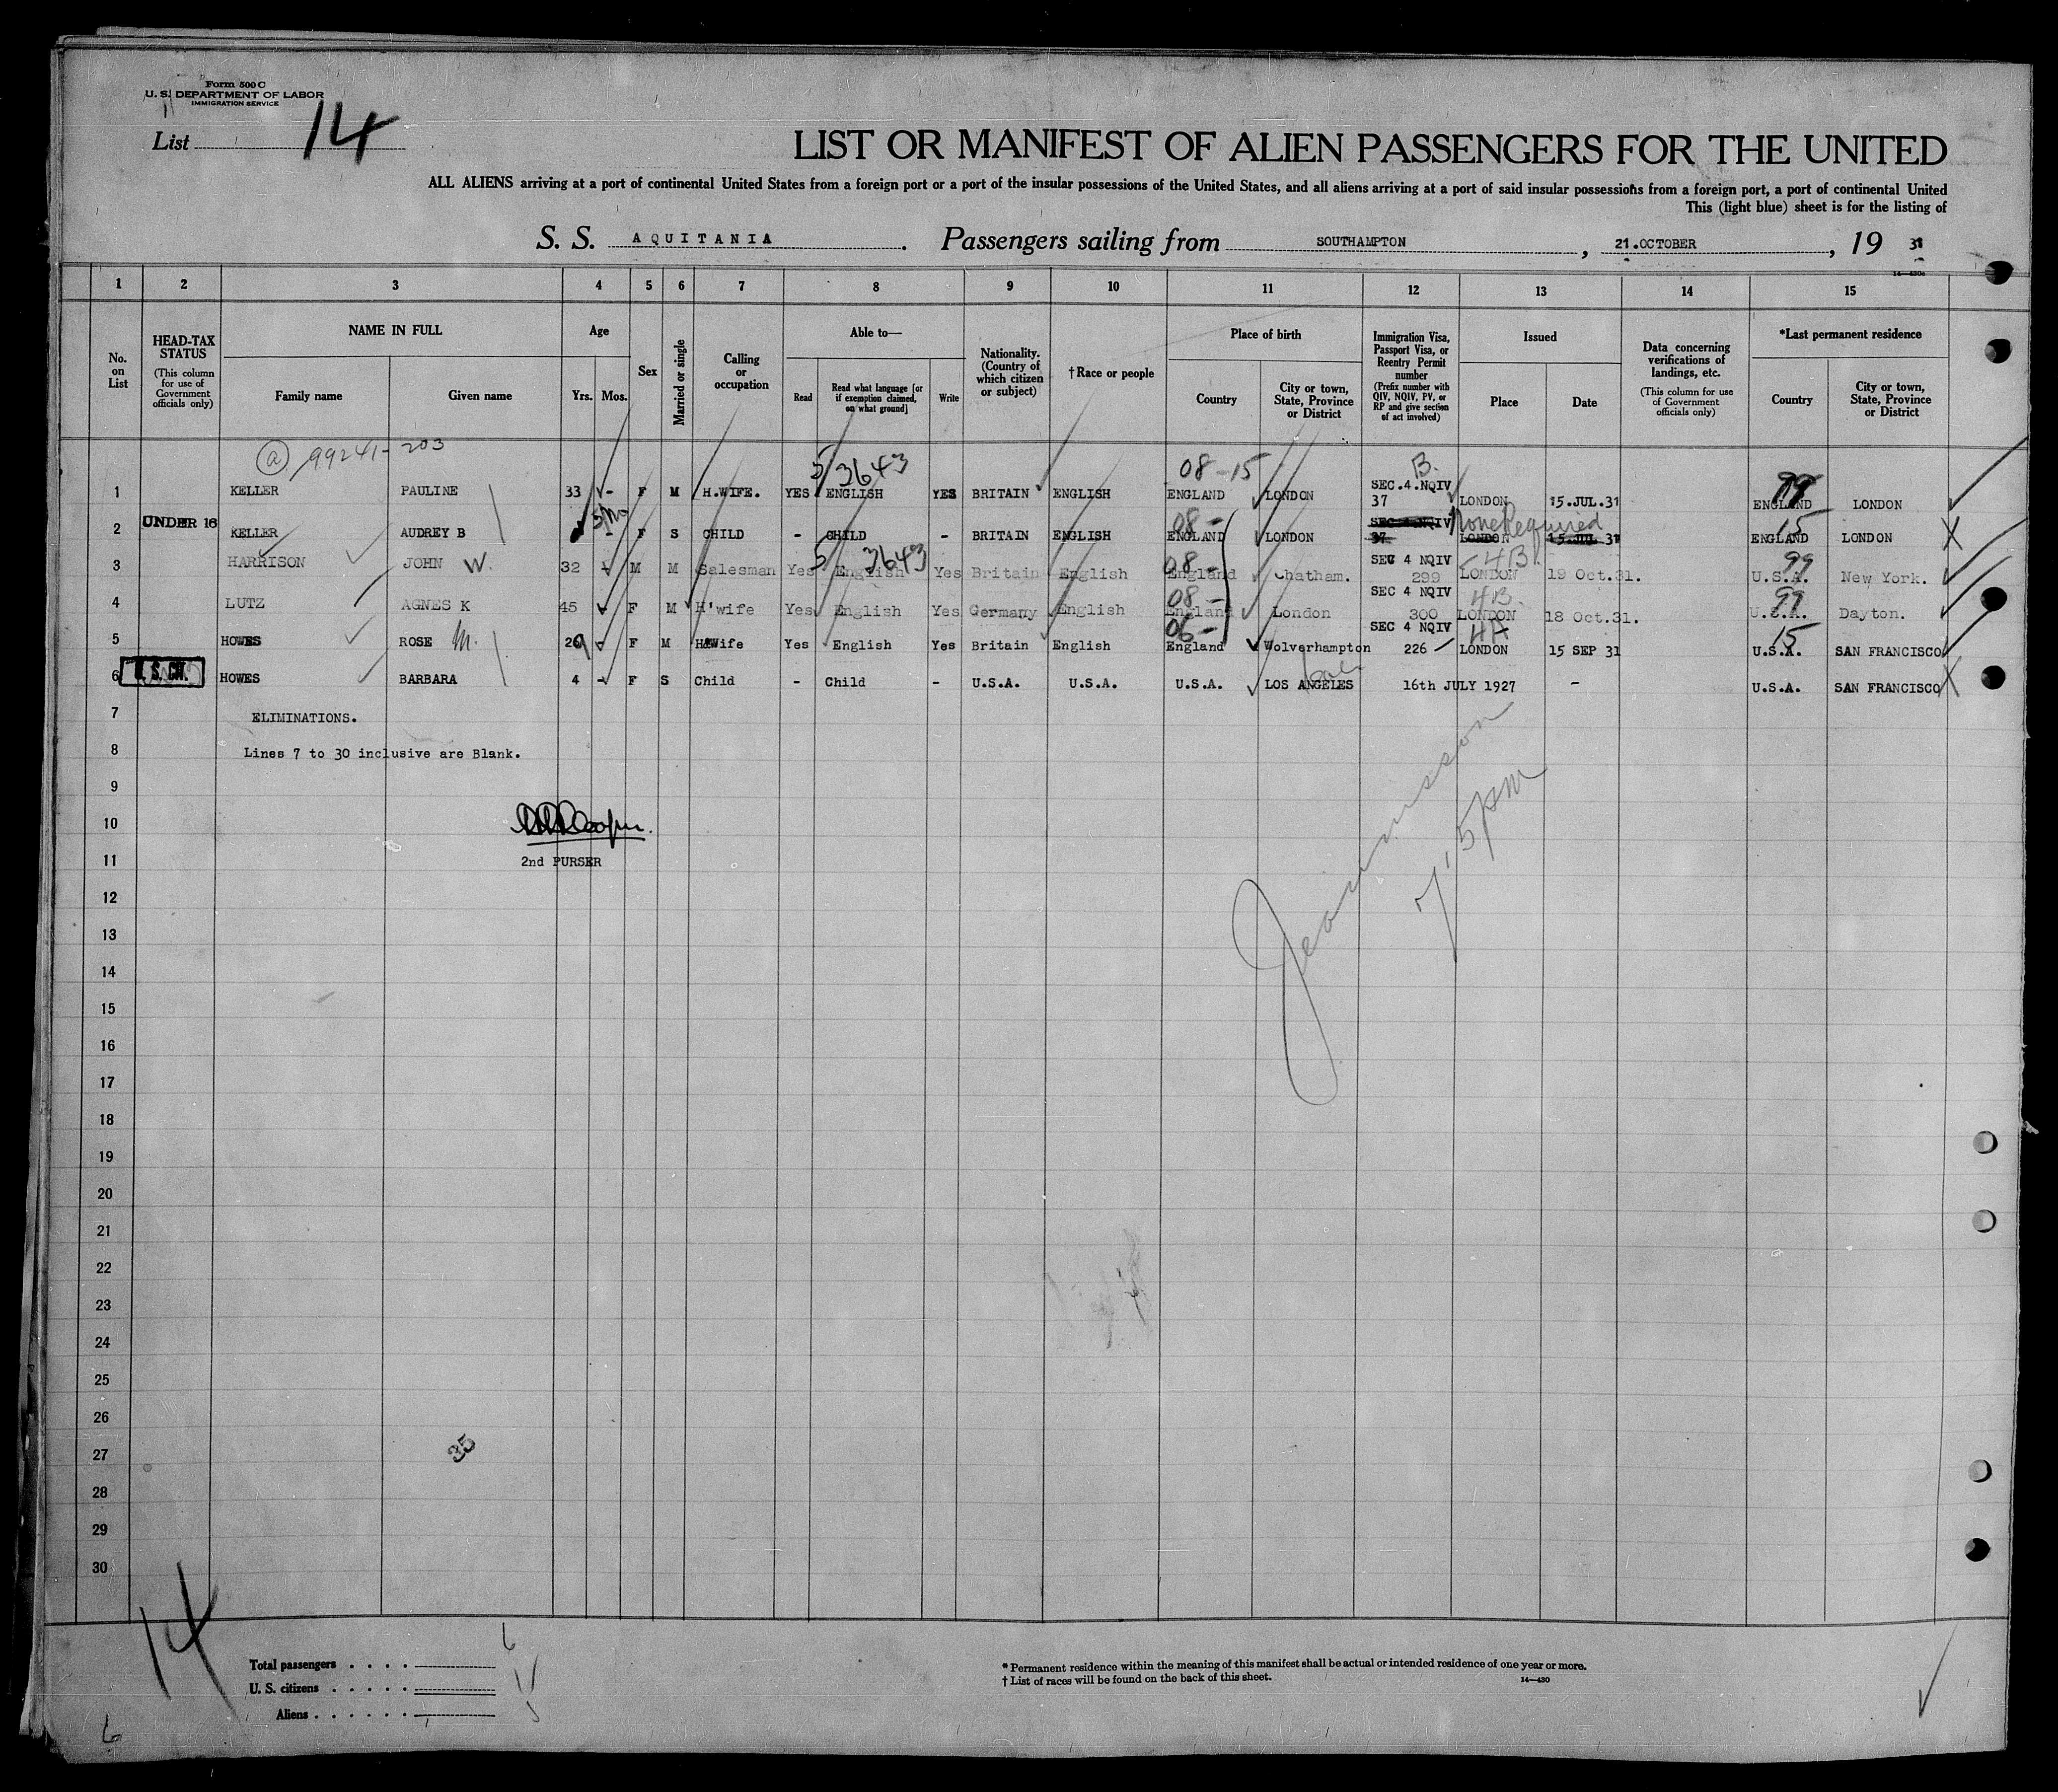 Form 500 C
U. S. DEPARTMENT OF LABOR
IMMIGRATION SERVICE
List 14
LIST OR MANIFEST OF ALIEN PASSENGERS FOR THE UNITED
ALL ALIENS arriving at a port of continental United States from a foreign port or a port of the insular possessions of the United States, and all aliens arriving at a port of said insular possessions from a foreign port, a port of continental United
This (light blue) sheet is for the listing of
S. S. AQUITANIA. Passengers sailing from SOUTHAMPTON, 21.OCTOBER, 19 31
14—430c
1 2 3 4 5 6 7 8 9 10 11 12 13 14 15
No. on List
HEAD-TAX STATUS (This column for use of Government officials only)
NAME IN FULL
Family name Given name
Age
Yrs. Mos.
Sex
Married or single
Calling or occupation
Able to—
Read Read what language [or if exemption claimed, on what ground] Write
Nationality. (Country of which citizen or subject)
†Race or people
Place of birth
Country City or town, State, Province or District
Immigration Visa, Passport Visa, or Reentry Permit number (Prefix number with QIV, NQIV, PV, or RP and give section of act involved)
Issued
Place Date
Data concerning verifications of landings, etc. (This column for use of Government officials only)
*Last permanent residence
Country City or town, State, Province or District
(a) 99241-203
5/3643 08-15 B. 99
1 KELLER PAULINE 33 - F M H.WIFE. YES ENGLISH YES BRITAIN ENGLISH ENGLAND LONDON SEC.4.NQIV 37 LONDON 15.JUL.31 ENGLAND LONDON
5mo 08- None Required 15
2 UNDER 16 KELLER AUDREY B - F S CHILD - CHILD - BRITAIN ENGLISH ENGLAND LONDON SEC 4 NQIV 37 LONDON 15 JUL 31 ENGLAND LONDON
5 3643 08- 4B 99
3 HARRISON JOHN W. 32 M M Salesman Yes English Yes Britain English England Chatham. SEC 4 NQIV 299 LONDON 19 Oct.31. U.S.A. New York.
08- 4B. 99
4 LUTZ AGNES K 45 - F M H'wife Yes English Yes Germany English England London SEC 4 NQIV 300 LONDON 18 Oct.31. U.S.A. Dayton.
06- 4A 15
5 HOWES ROSE M. 29 - F M H'Wife Yes English Yes Britain English England Wolverhampton SEC 4 NQIV 226 LONDON 15 SEP 31 U.S.A. SAN FRANCISCO
6 U. S. CIT. HOWES BARBARA 4 - F S Child - Child - U.S.A. U.S.A. U.S.A. LOS ANGELES 16th JULY 1927 - U.S.A. SAN FRANCISCO
7 ELIMINATIONS.
8 Lines 7 to 30 inclusive are Blank.
9
10
11 2nd PURSER
12
13
14
15
16
17
18
19
20
21
22
23
24
25
26
27 35
28
29
30
14
Total passengers . . . . 6
U. S. citizens . . . . .
Aliens . . . . . .
6
* Permanent residence within the meaning of this manifest shall be actual or intended residence of one year or more.
† List of races will be found on the back of this sheet. 14—430